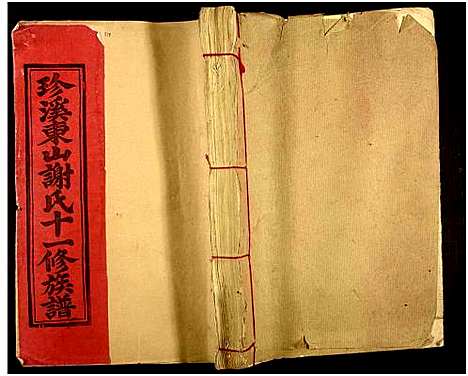 珍溪東山謝氏十一修族譜